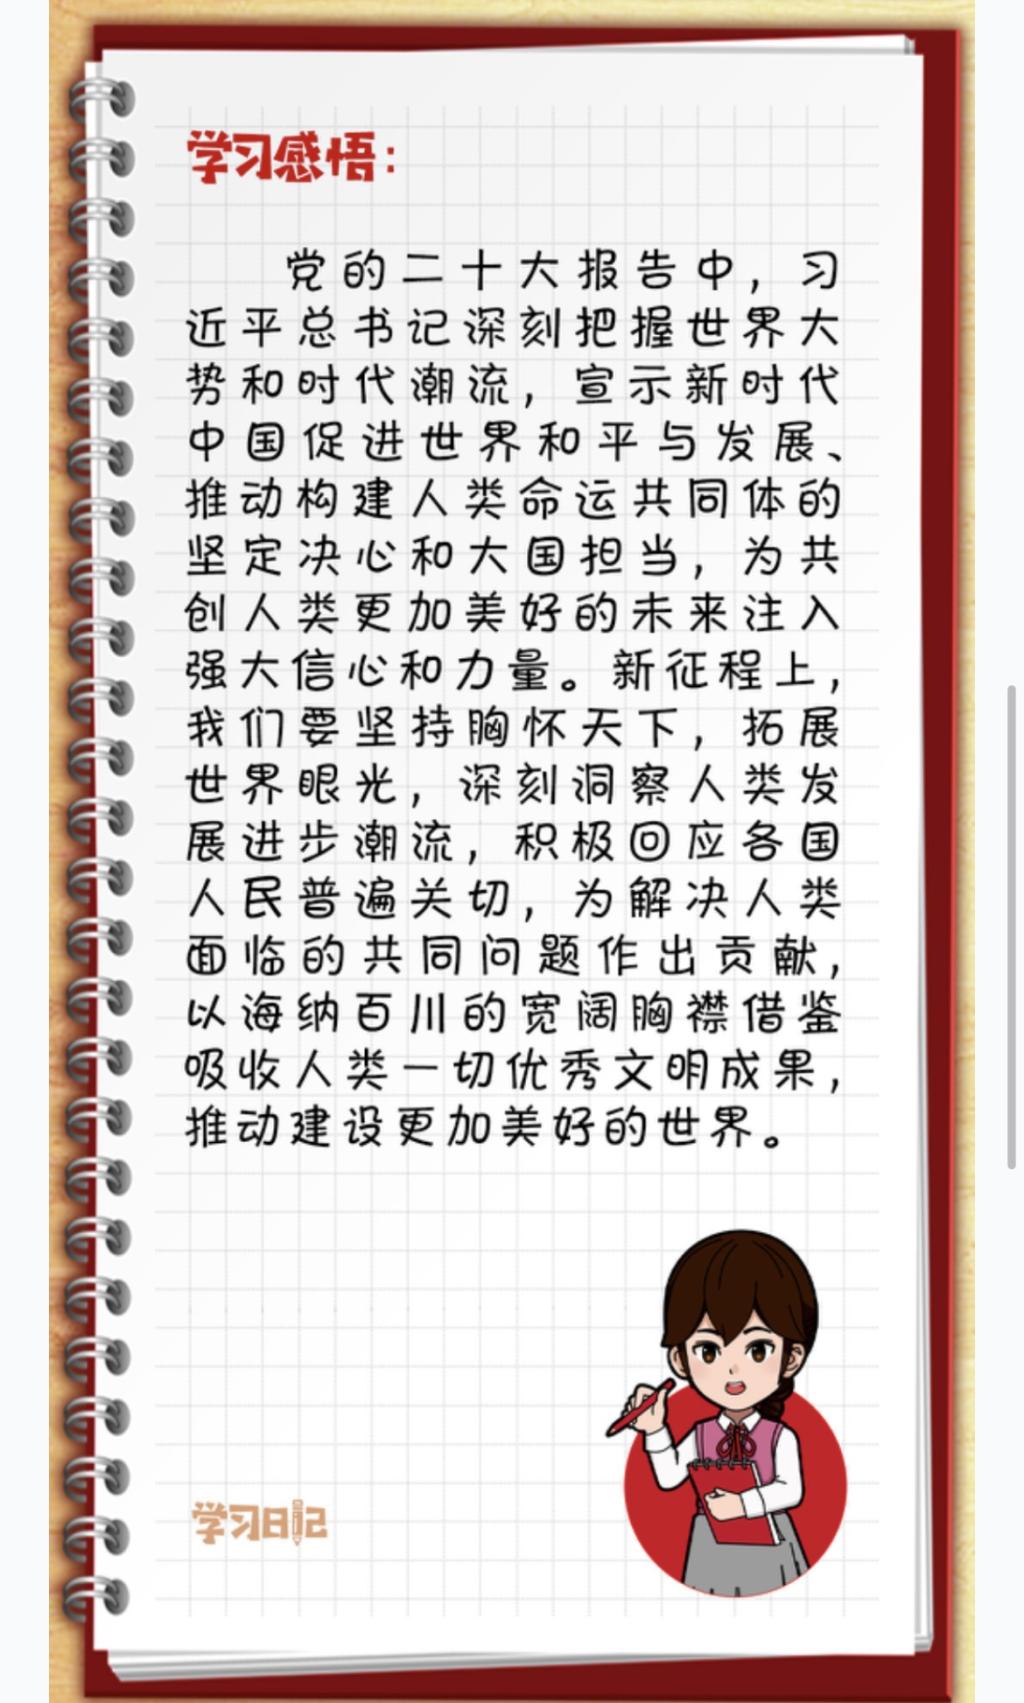 学习感悟：
党的二十大报告中，习
近平总书记深刻把握世界大
势和时代潮流，宣示新时代
中国促进世界和平与发展、
推动构建人类命运共同体的
坚定决心和大国担当，为共
创人类更加美好的未来注入
强大信心和力量。新征程上，
我们要坚持胸怀天下，拓展
世界眼光，深刻洞察人类发
展进步潮流，积极回应各国
人民普遍关切，为解决人类
面临的共同问题作出贡献，
以海纳百川的宽阔胸襟借鉴
吸收人类一切优秀文明成果，
推动建设更加美好的世界。
学习日记